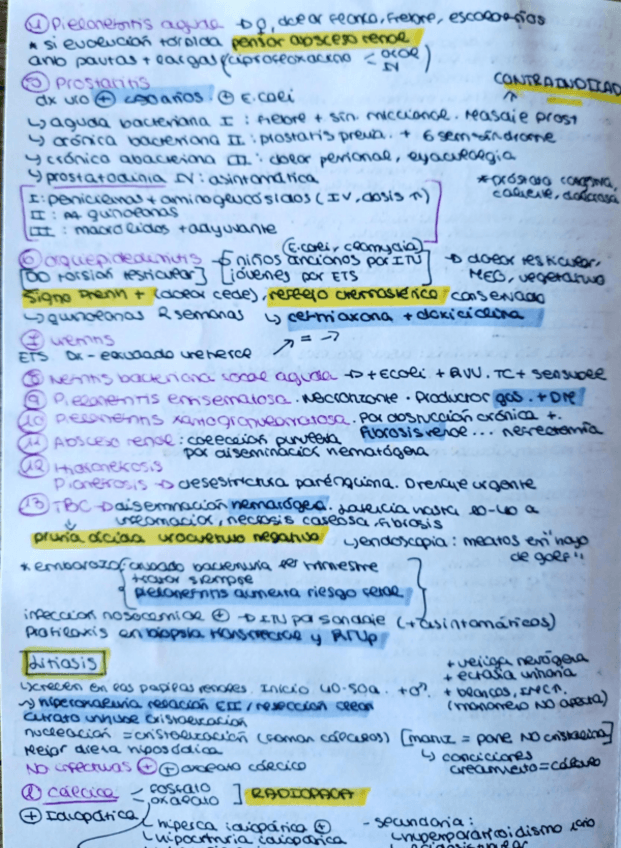 ④ Pielonefritis aguda → ♀, dolor flanco, fiebre, escalofríos
* si evolución tórpida pensar absceso renal
antb pautas + largas (ciprofloxacino < oral IV)
⑤ Prostatitis
CONTRAINDICAD
dx uro ⊕ <50 años. ⊕ E.coli
↳ aguda bacteriana I : fiebre + sin. miccional. Masaje prost
↳ crónica bacteriana II : prostatis previa. + 6 sem síndrome
↳ crónica abacteriana III : dolor perineal, eyaculalgia
↳ prostatodinia IV : asintomática
* próstata
caliente, dolorosa
I : penicilinas + aminoglucósidos (IV, dosis ↑)
II : quinolonas
III : macrólidos + adyuvante
(E.coli, clamydia)
⑥ orquiepididimitis → niños ancianos por ITU → dolor testicular,
[DD torsión testicular] [jóvenes por ETS] MEG, vegetativo
Signo Prehn + (dolor cede), reflejo cremastérico conservado
↳ quinolonas 2 semanas ↳ ceftriaxona + doxiciclina
⑦ uretritis
ETS Dx - exudado uretral
⑧ Nefritis bacteriana focal aguda → + Ecoli + RVU. TC + sensible
⑨ Pielonefritis enfisematosa. Necrotizante. Productor gas. + DM
⑩ Pielonefritis xantogranulomatosa. Por obstrucción crónica +.
fibrosis renal ... nefrectomía
⑪ Absceso renal : colección purulenta
por diseminación hematógena
⑫
Pionefrosis → desestructura parénquima. Drenaje urgente
⑬ TBC → diseminación hematógena. latencia hasta 10-40 a
inflamación, necrosis caseosa, fibrosis
piuria ácida urocultivo negativo ↳ endoscopia : meatos en "hoyo
de golf"
* embarazo: cribado bacteriuria 1er trimestre
tratar siempre
pielonefritis aumenta riesgo fetal
infección nosocomial ⊕ → ITU por sondaje (+ asintomáticos)
Profilaxis en biopsia transrectal y RTUp
Litiasis
+ vejiga neurógena
+ ectasia urinaria
↳ crecen en las papilas renales. Inicio 40-50a. + ♂. + blancos,
(no afecta)
→ hiperoxaluria relación EII / resección ileon
Citrato inhibe cristalización
nucleación = cristalización (forman cálculos) [matriz = pone NO cristaliza]
Mejor dieta hiposódica
↳ condiciones
crecimiento = cálculo
NO infectivas ⊕ ⊕ oxalato cálcico
① Cálcica < fosfato oxalato ] RADIOPACA
⊕ Idiopática
↳ hiperca idiopática ⊕ - secundaria :
↳ hipocitruria idiopática ↳ hiperparatiroidismo 1ario